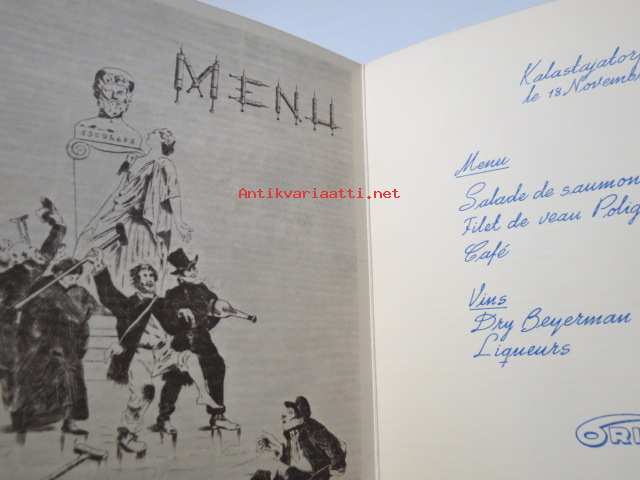 MENU
Antikvariaatti.net
Kalastajatorp
le 18 Novemb
Menu
Salade de saumon
Filet de veau Polig
Café
Vins
Dry Beyerman
Liqueurs
ORI